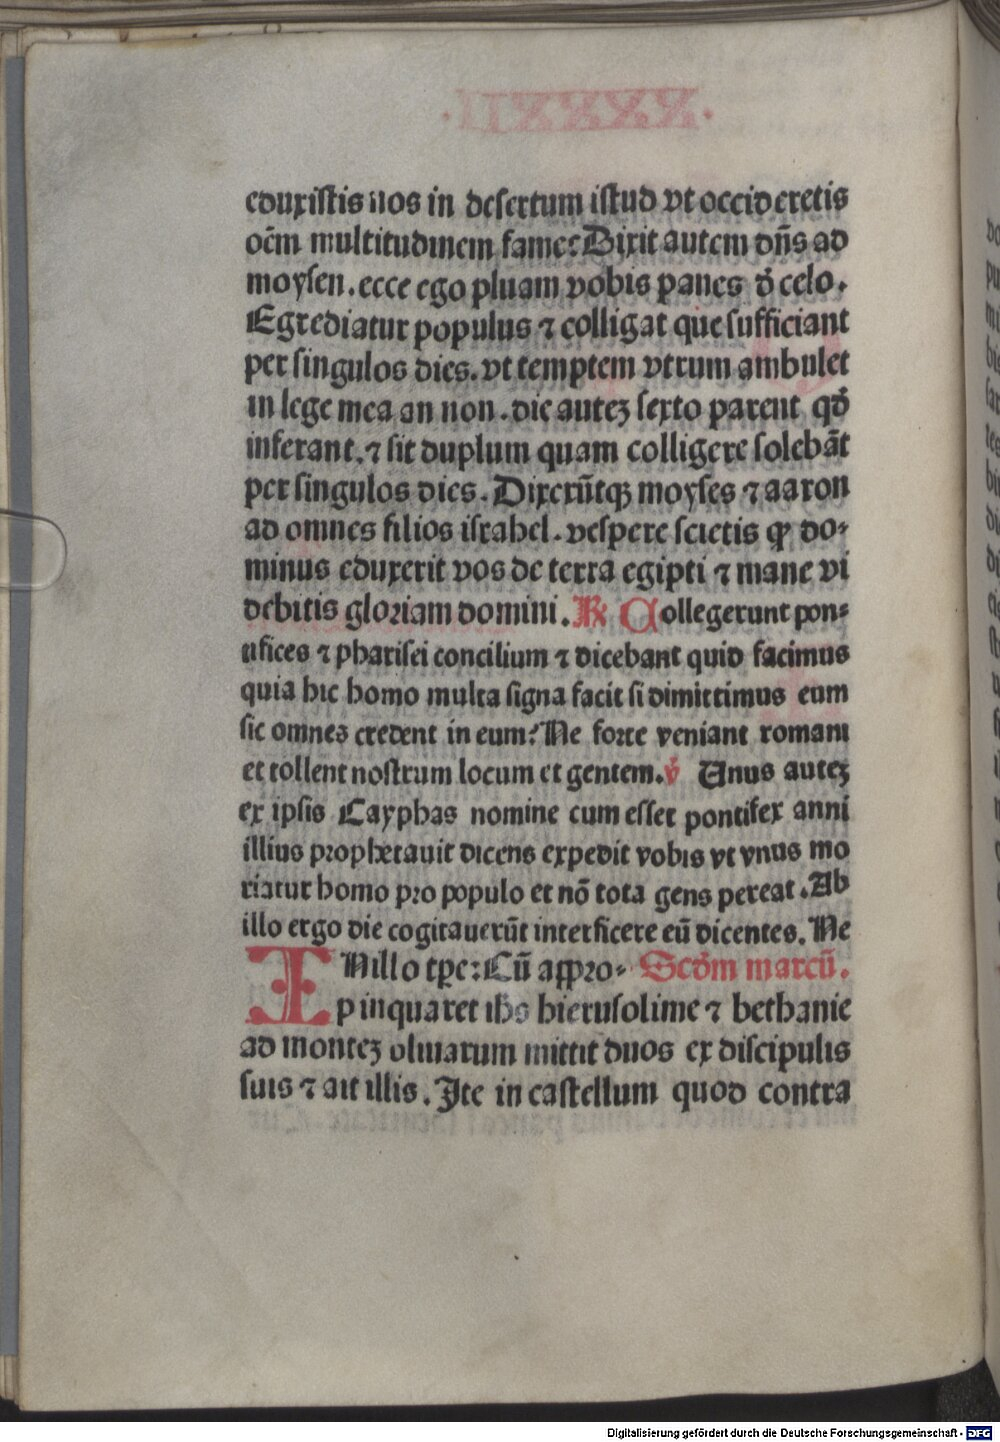 eduxistis nos in desertum istud vt occideretis
oēm multitudinem fame? Dixit autem dn̄s ad
moysen. ecce ego pluam vobis panes d̄ celo.
Egrediatur populus ⁊ colligat que sufficiant
per singulos dies. vt temptem vtrum ambulet
in lege mea an non. die auteꝫ sexto parent qd̄
inferant. ⁊ sit duplum quam colligere solebāt
per singulos dies. Dixerūtqꝫ moyses ⁊ aaron
ad omnes filios israhel. vespere scietis ꝙ do-
minus eduxerit vos de terra egipti ⁊ mane vi
debitis gloriam domini. ℟ Collegerunt pon-
tifices ⁊ pharisei concilium ⁊ dicebant quid facimus
quia hic homo multa signa facit si dimittimus eum
sic omnes credent in eum? Ne forte veniant romani
et tollent nostrum locum et gentem. ℣ Unus auteꝫ
ex ipsis Cayphas nomine cum esset pontifex anni
illius prophetauit dicens expedit vobis vt vnus mo
riatur homo pro populo et nō tota gens pereat. Ab
illo ergo die cogitauerūt interficere eū dicentes. Ne
IN illo tꝑe: Cū aꝓpro- Scd̄m marcū.
pinquaret ihs hierusolime ⁊ bethanie
ad monteꝫ oliuarum mittit duos ex discipulis
suis ⁊ ait illis. Ite in castellum quod contra
Digitalisierung gefördert durch die Deutsche Forschungsgemeinschaft - DFG